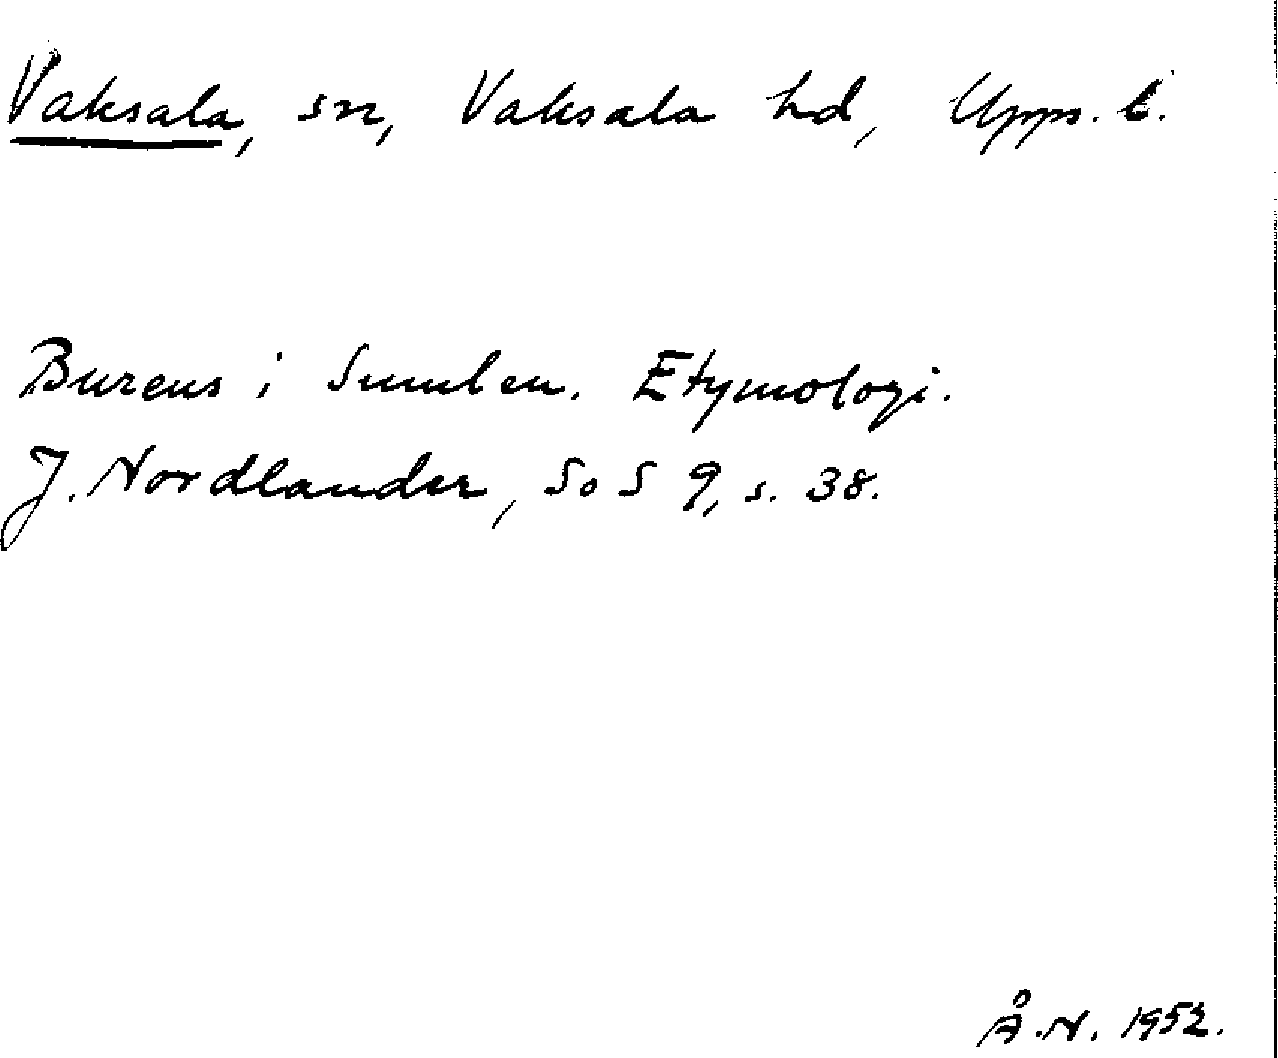 Vaksala, sn, Vaksala hd, Upps. l.
Bureus i Sumlen. Etymologi.
J. Nordlander, SoS 9, s. 38.
Å.N. 1952.